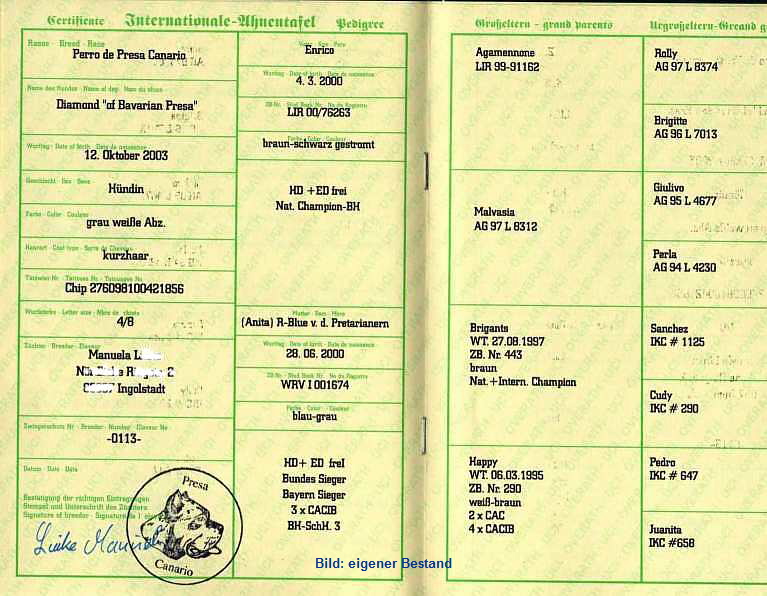 Certifiente Internationale-Ahnentafel Pedigree
Rasse - Breed - Race
Perro de Presa Canario
Name des Hundes - Name of dog - Nom du chien
Diamond "of Bavarian Presa"
Wurftag - Date of birth - Date de naissance
12. Oktober 2003
Geschlecht - Sex - Sexe
Hündin
Farbe - Color - Couleur
grau weiße Abz.
Haarart - Coat type -
kurzhaar
Chip 276098100421856
Wurfstärke - Letter size -
4/8
Züchter - Breeder - Eleveur
Manuela
Ingolstadt
Zwingerschutz Nr - Breeder - Number -
-0113-
Datum - Date - Date
Bestätigung der richtigen Eintragungen
Stempel und Unterschrift des Züchters
Signature of breeder -
Presa
Canario
Enrico
Wurftag - Date of birth - Date de naissance
4. 3. 2000
ZB-Nr. - Stud Book Nr. - No du Registre
LIR 00/76263
Farbe - Color - Couleur
braun-schwarz gestromt
HD +ED frei
Nat. Champion-BH
Mutter - Dam - Mère
(Anita) R-Blue v. d. Pretarianern
Wurftag - Date of birth - Date de naissance
28. 06. 2000
ZB-Nr. - Stud Book Nr. - No du Registre
WRV I 001674
Farbe - Color - Couleur
blau-grau
HD+ ED freI
Bundes Sieger
Bayern Sieger
3 x CACIB
BH-SchH. 3
Großeltern - grand parents
Agamennone
LIR 99-91162
Malvasia
AG 97 L 8312
Brigants
WT. 27.08.1997
ZB. Nr. 443
braun
Nat.+Intern. Champion
Happy
WT. 06.03.1995
ZB. Nr. 290
weiß-braun
2 x CAC
4 x CACIB
Urgroßeltern-Greand g
Rolly
AG 97 L 8374
Brigitte
AG 96 L 7013
Giulivo
AG 95 L 4677
Perla
AG 94 L 4230
Sanchez
IKC # 1125
Cudy
IKC # 290
Pedro
IKC # 647
Juanita
IKC #658
Bild: eigener Bestand